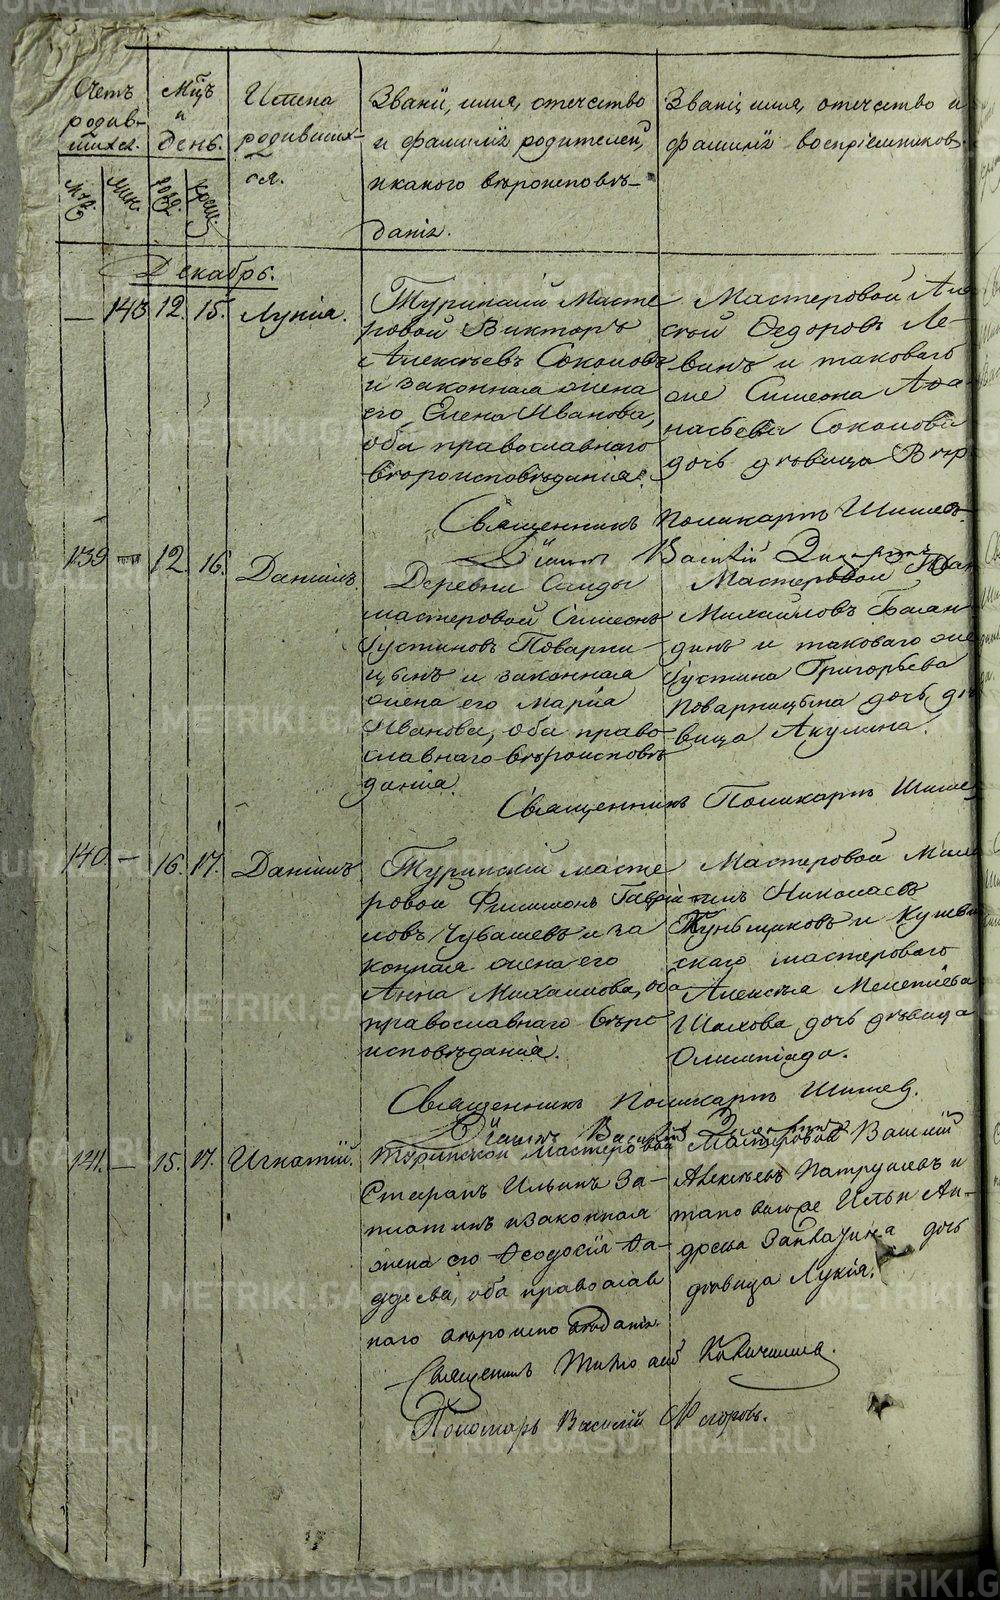 METRIKI.GASO-URAL.RU
Счетъ родив-шихся.
Муж.
Жен.
Мцъ и день.
рожд.
крещ.
Имена родивших-ся.
Званіе, имя, отечество
и фамилія родителей,
и какого вѣроисповѣ-
данія.
Званіе, имя, отечество и
фамилія воспріемниковъ.
Декабрь.
— 143 12. 15. Лукія.
Туринскій Масте
ровой Викторъ
Алексѣевъ Соколовъ
и законная жена
его Елена Иванова,
оба православнаго
вѣроисповѣданія.
Мастеровой
Федоровъ Ле-
винъ и таковаго
же Симеона Афа-
насьева Соколова
дочь дѣвица
Священникъ Поликарпъ Шишев
Василій
139 12. 16. Даніилъ.
Деревни Салды
мастеровой Симеонъ
Іустиновъ Поварни
цынъ и законная
жена его Марія
Иванова, оба право
славнаго вѣроисповѣ
данія.
Мастеровой
Михайловъ Балан
динъ и таковаго же
Іустина Григорьева
Поварницына дочь дѣ
вица Акулина.
Священникъ Поликарпъ Шишев
140. — 16. 17. Даніилъ
Туринскій масте
ровой Филимонъ Гавріи
ловъ Чувашевъ и за
конная жена его
Анна Михаилова, оба
православнаго вѣро
исповѣданія.
Мастеровой
Николаевъ
и Кушвин
скаго мастероваго
Алексѣя Мелетіева
Шахова дочь дѣвица
Олимпіада.
Священникъ Поликарпъ Шишев.
Василій
141. — 15. 17. Игнатій.
Туринской Мастеровой
Стефанъ Ильинъ За-
платинъ и законная
жена его Ѳеодосія Ѳа-
ддеева, оба православ
наго вѣроиспо вѣданія.
Мастеровой Василій
Алексѣевъ Патрушевъ и
таковагоже Ильи Ан-
дреева дочь
дѣвица Лукія.
Священникъ
Пономарь Василій Флоровъ.